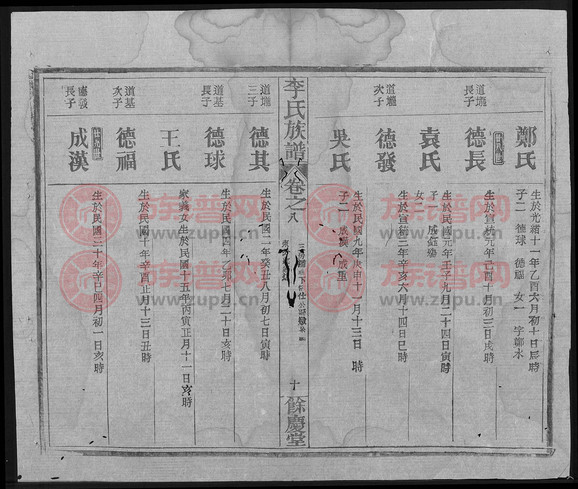 鄭氏
生於光緒十一年乙酉六月初七日辰時
子二 德球 德福 女一 字鄒水
道壚
長子
德長
生於宣統元年七四十月初三日戌時
袁氏
生於民國元年壬子九月二十二日戌時
女二
道壚
次子
德發
生於宣統三年辛亥六月十四日巳時
吳氏
生於民國九年庚申十一月十三日時
子二 成漢
李氏族譜
卷之八
十
餘慶堂
道壚
三子
德其
生於民國二年癸丑八月初七日寅時
道基
長子
德球
生於民國四年乙卯七月二十日亥時
王氏
家義女生於民國十五年丙寅正月十一日亥時
道基
次子
德福
生於民國十年辛酉正月十三日丑時
長子
成漢
生於民國三十年辛巳四月初一日亥時
族譜网
www.zupu.cn